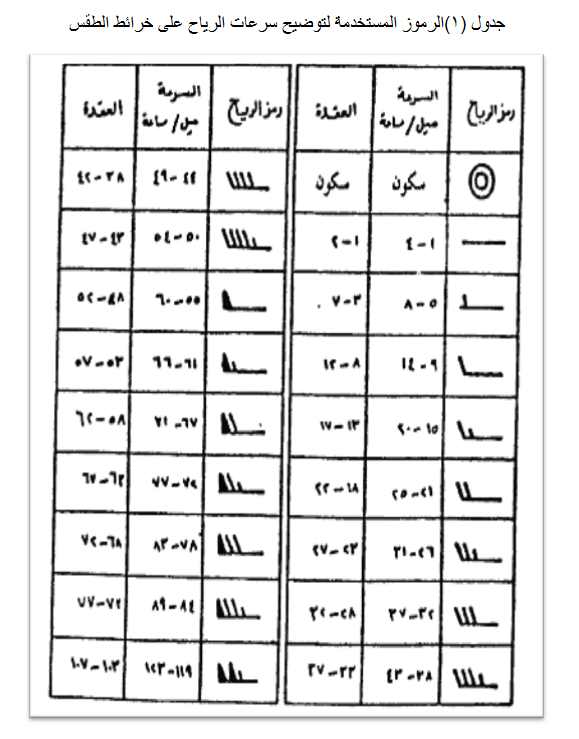 جدول (١)الرموز المستخدمة لتوضيح سرعات الرياح على خرائط الطقس
رمز الرياح السرعة ميل/ساعة العقدة رمز الرياح السرعة ميل/ساعة العقدة
سكون سكون ٤٤-٤٩ ٣٨-٤٢
١-٤ ١-٢ ٥٠-٥٤ ٤٣-٤٧
٥-٨ ٣-٧ ٥٥-٦٠ ٤٨-٥٢
٩-١٤ ٨-١٢ ٦١-٦٦ ٥٣-٥٧
١٥-٢٠ ١٣-١٧ ٦٧-٧١ ٥٨-٦٢
٢١-٢٥ ١٨-٢٢ ٧٢-٧٧ ٦٣-٦٧
٢٦-٣١ ٢٣-٢٧ ٧٨-٨٣ ٦٨-٧٢
٣٢-٣٧ ٢٨-٣٢ ٨٤-٨٩ ٧٣-٧٧
٣٨-٤٣ ٣٣-٣٧ ١١٩-١٢٣ ١٠٣-١٠٧